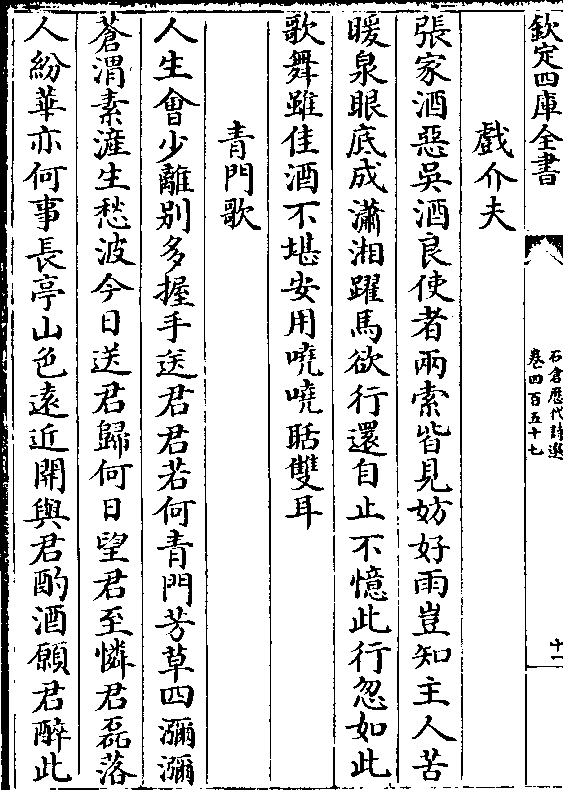 欽定四庫全書
石倉歷代詩選
卷四百五十七
十一
戲介夫
張家酒惡吳酒良使者兩索皆見妨好雨豈知主人苦
暖泉眼底成瀟湘躍馬欲行還自止不憶此行忽如此
歌舞雖佳酒不堪安用嘵嘵聒雙耳
青門歌
人生會少離别多握手送君君若何青門芳草四瀰瀰
蒼渭素滻生愁波今日送君歸何日望君至憐君磊落
人紛華亦何事長亭山色遠近開與君酌酒願君醉此